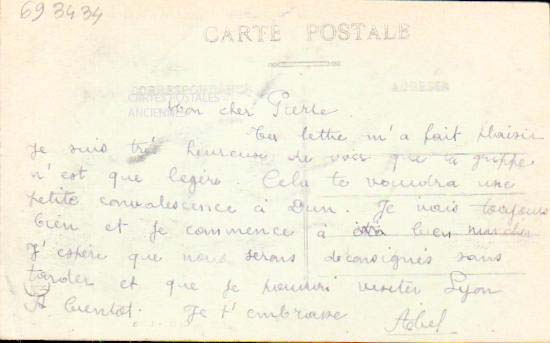 693434
CARTE POSTALE
CORRESPONDANCE
ADRESSE
CARTES POSTALES
ANCIENNES
Mon cher Pierre
Ta lettre m'a fait plaisir
je suis très heureuse de voir que ta grippe
n'est que légère. Cela te voudra une
petite convalescence à Dun. Je vais toujours
bien et je commence à bien marcher
J'espère que nous serons déconsignés sans
tarder et que je pourrai visiter Lyon
A bientot. Je t'embrasse
Abel